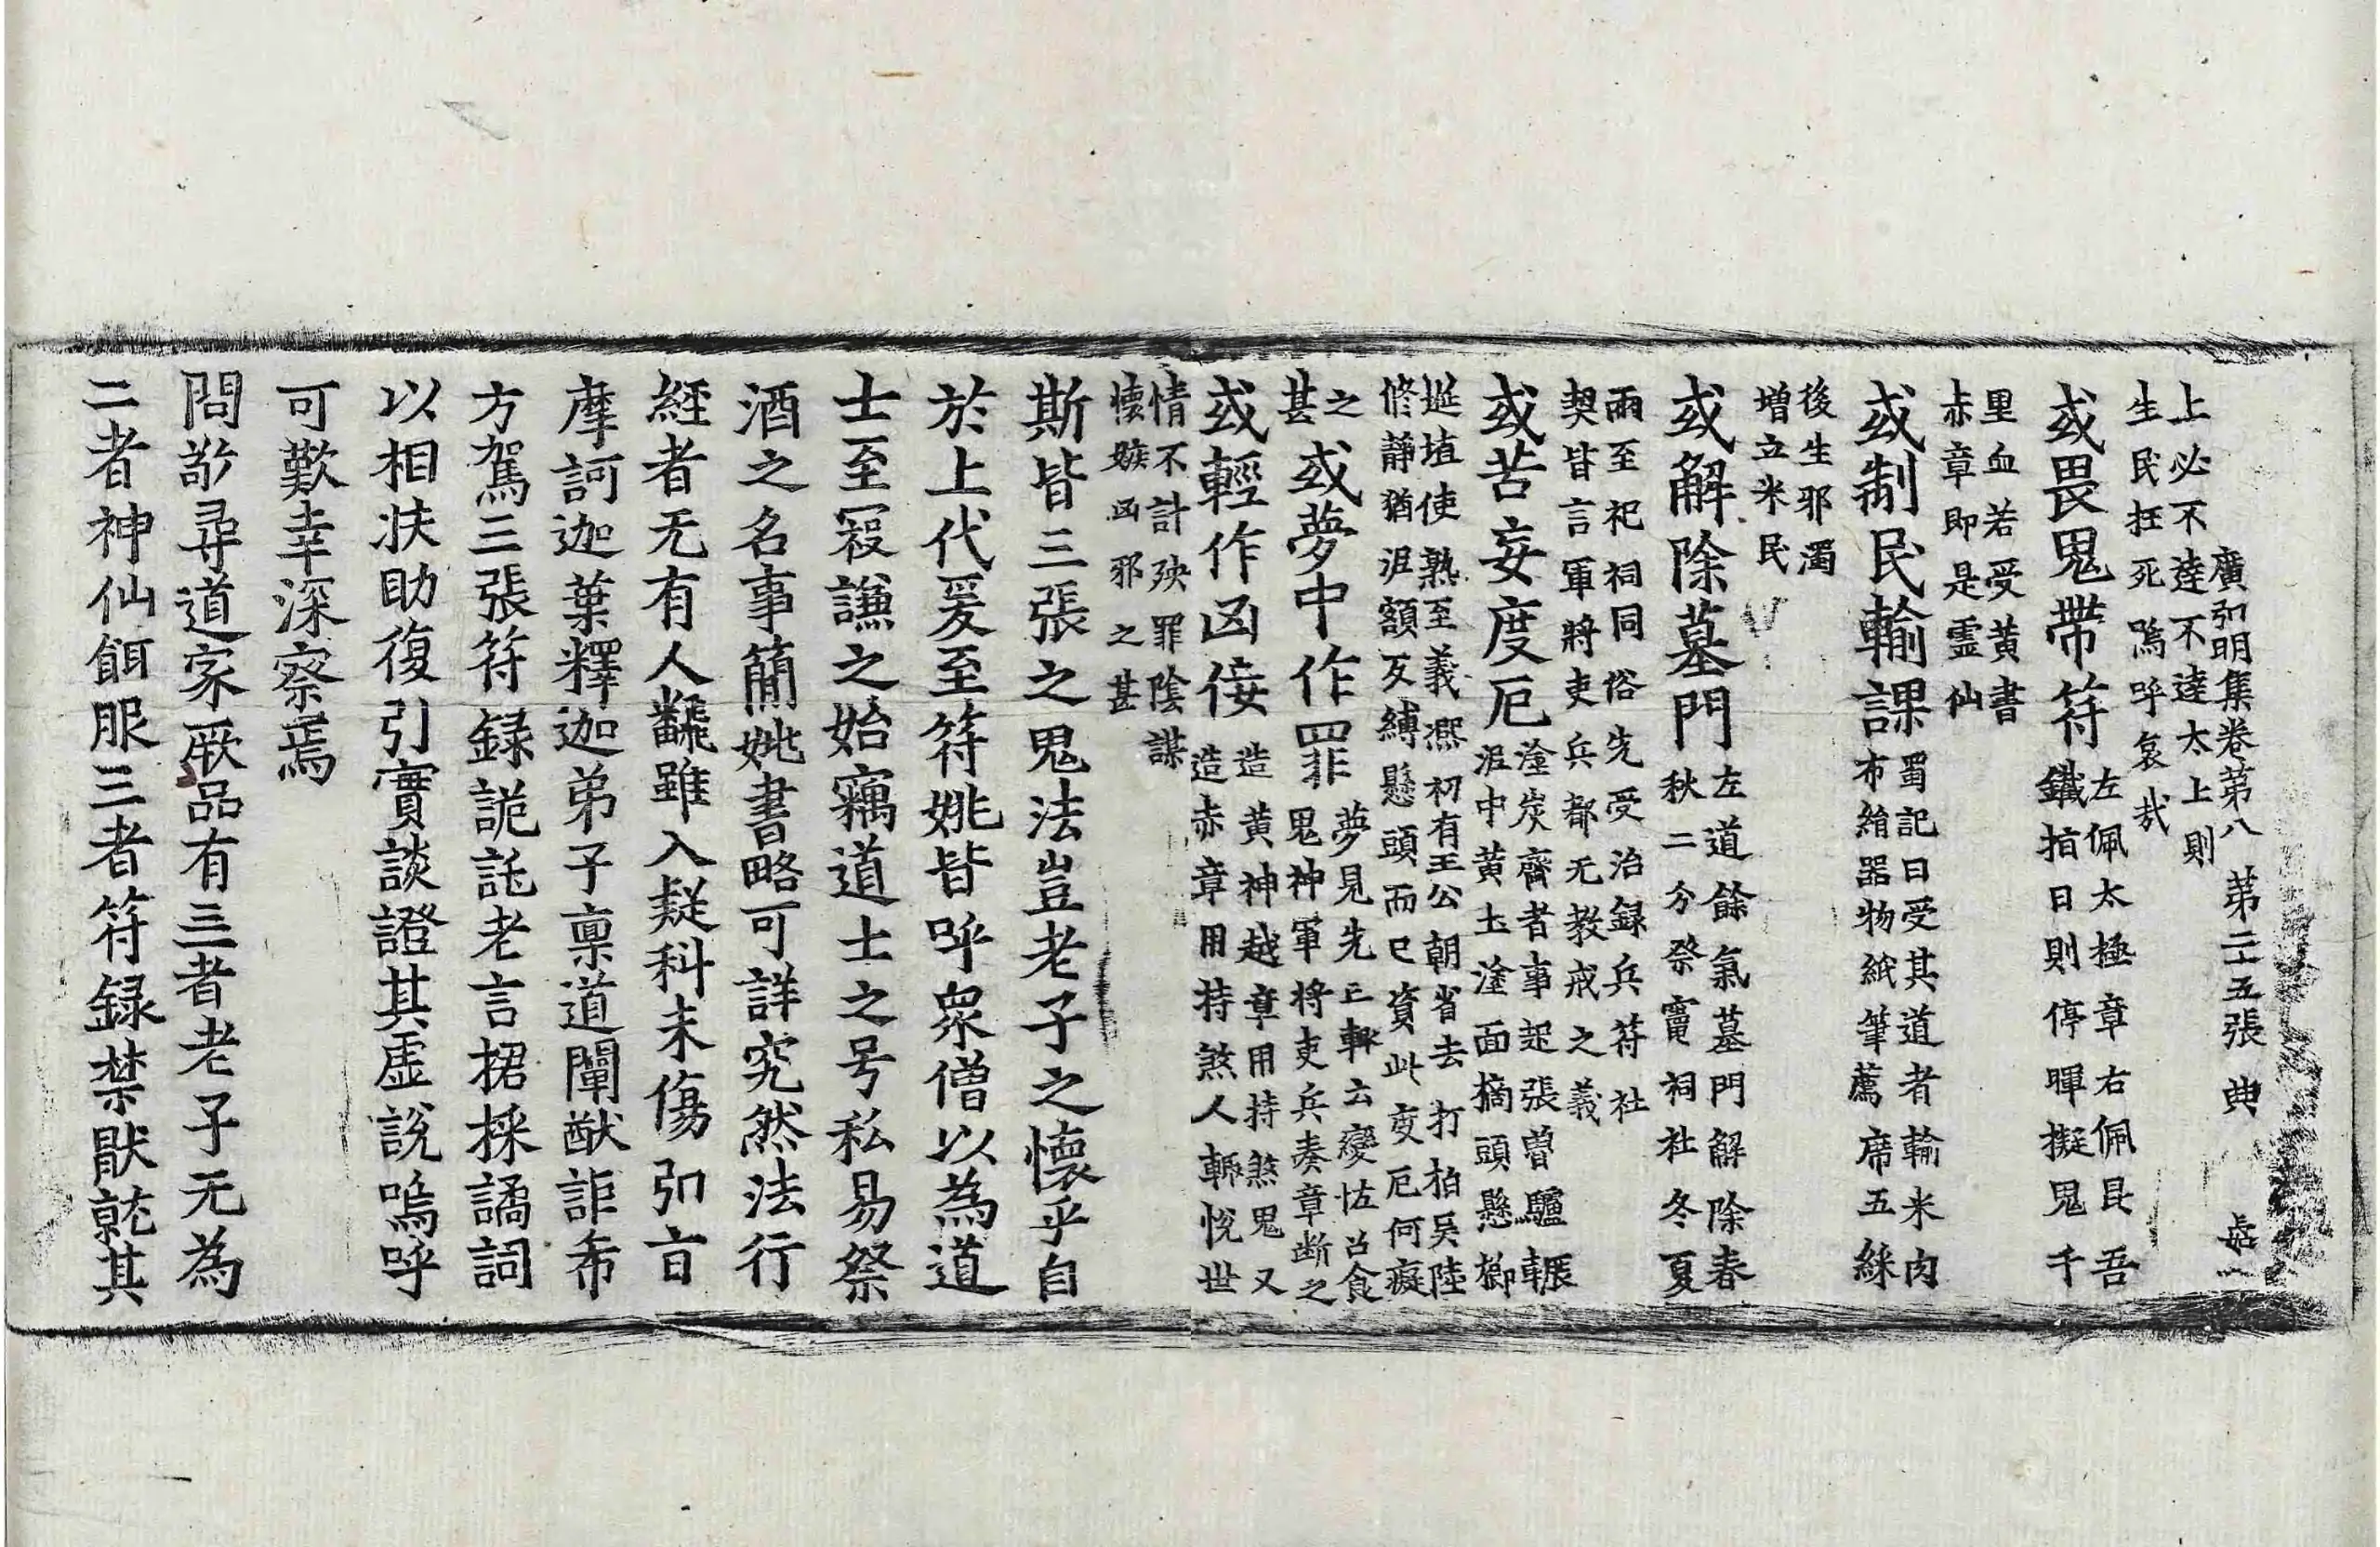 廣弘明集卷第八　第二十五張　典
上必不達不達太上則
生民枉死嗚呼哀哉
或畏鬼帶符左佩太極章右佩昆吾
鐵指日則停暉擬鬼千
里血若受黃書
赤章即是霊仙
或制民輸課蜀記曰受其道者輸米肉
布絹器物紙筆薦席五綵
後生邪濁
增立米民
或解除墓門左道餘氣墓門解除春
秋二分祭竈祠社冬夏
兩至祀祠同俗先受治録兵符社
契皆言軍將吏兵都无教戒之義
或苦妄度厄塗炭齋者事起張魯驢輾
泥中黃土塗面摘頭懸栁
埏埴使熟至義熈初有王公朝省去打拍吳陸
修靜猶泥額反縛懸頭而已資此度厄何癡
之
甚或夢中作罪夢見先亡輙云變怪召食
鬼神軍将吏兵奏章断之
或輕作凶佞造黃神越章用持煞鬼又
造赤章用持煞人輙悅世
情不計殃罪陰謀
懷嫉凶邪之甚
斯皆三張之鬼法豈老子之懷乎自
於上代爰至符姚皆呼衆僧以為道
士至寇謙之始竊道士之号私易祭
酒之名事簡姚書略可詳究然法行
經者无有人飜雖入疑科未傷弘旨
摩訶迦葉釋迦弟子禀道闡猷詎希
方駕三張符録詭託老言捃採譎詞
以相扶助復引實談證其虛說嗚呼
可歎幸深察焉
問敬尋道家厥品有三一者老子无為
二者神仙餌服三者符録禁厭就其